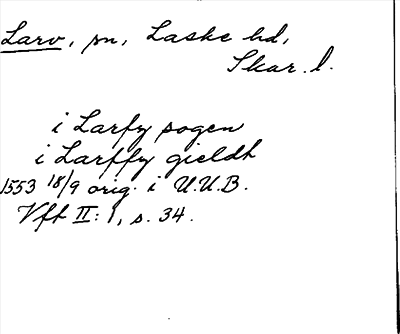 Larv, sn, Laske hd,
Skar. l.
i Larfy sogen
i Larffy gieldh
1553 18/9 orig. i U.U.B.
Vft II: 1, s. 34.